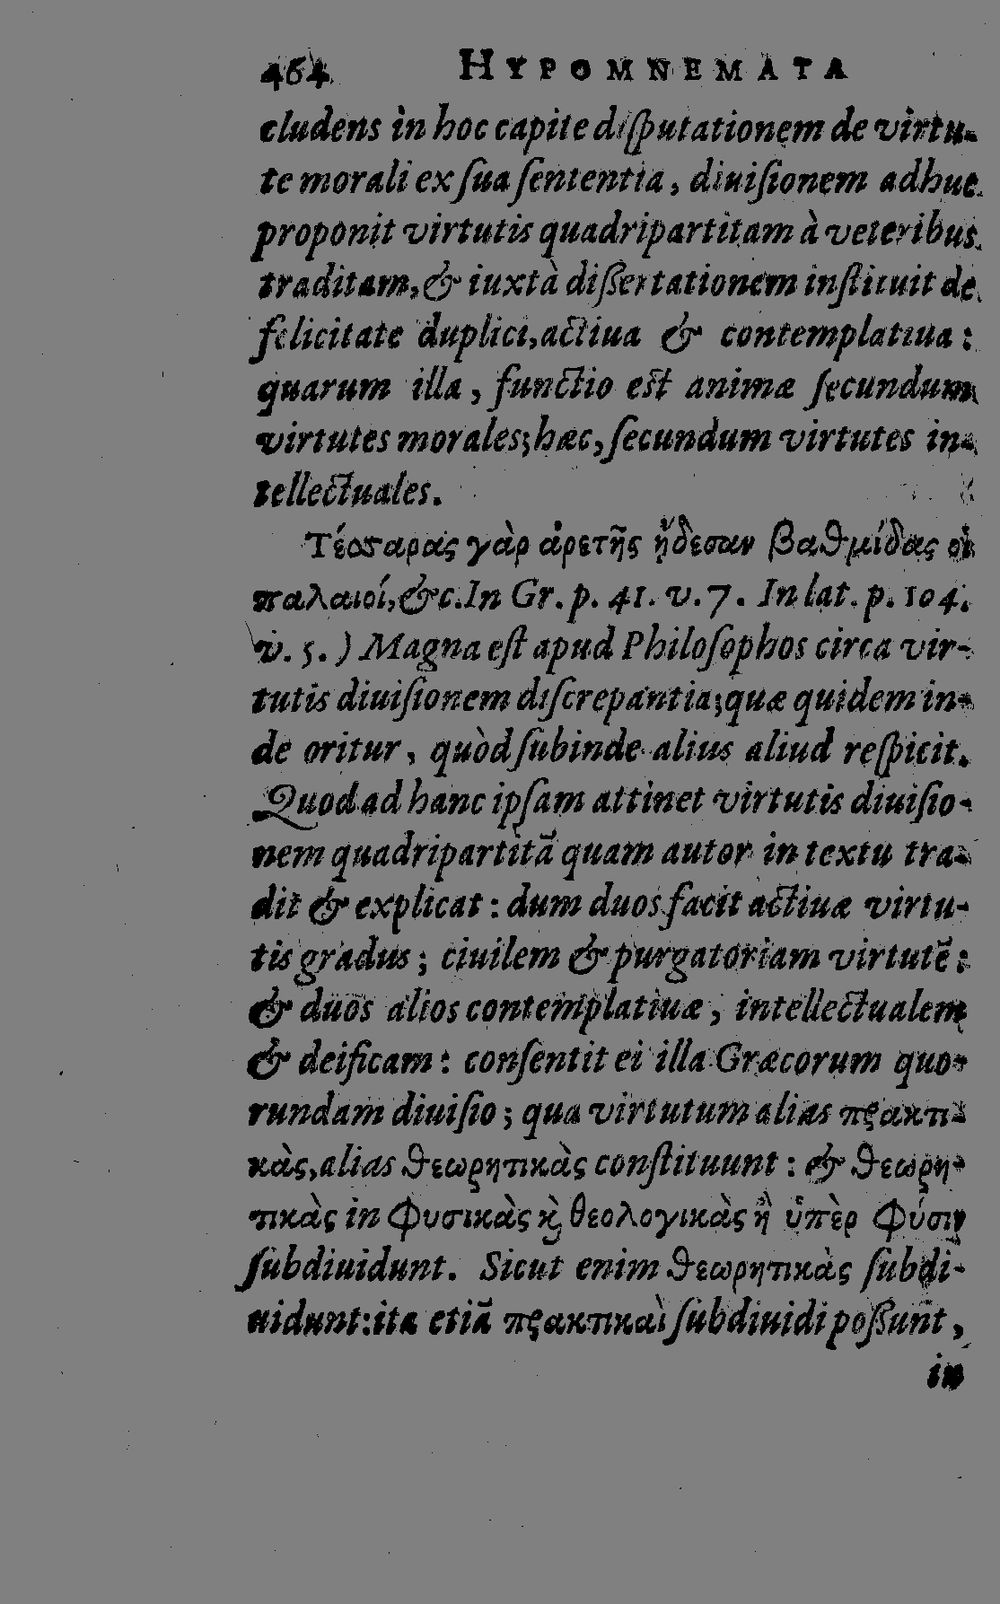 464 HYPOMNEMATA
cludens in hoc capite diſputationem de virtu-
te morali ex ſua ſententia, diuiſionem adhuc
proponit virtutis quadripartitam à veteribus
traditam, & iuxtà diſſertationem inſtituit de
felicitate duplici, actiua & contemplatiua:
quarum illa, functio est animæ ſecundum
virtutes morales; hæc, ſecundum virtutes in-
tellectuales.
Τέσσαρας γὰρ ἀρετῆς ᾔδεσαν βαθμίδας οἱ
παλαιοί, &c. In Gr. p. 41. v. 7. In lat. p. 104.
v. 5. ) Magna eſt apud Philoſophos circa vir-
tutis diuiſionem diſcrepantia; quæ quidem in-
de oritur, quòd ſubinde alius aliud reſpicit.
Quod ad hanc ipſam attinet virtutis diuiſio-
nem quadripartitā quam autor in textu tra-
dit & explicat: dum duos facit actiuæ virtu-
tis gradus; ciuilem & purgatoriam virtutē:
& duos alios contemplatiuæ, intellectualem
& deificam: conſentit ei illa Græcorum quo-
rundam diuiſio; qua virtutum alias πρακτι-
κὰς, alias θεωρητικὰς conſtituunt: & θεωρη-
τικὰς in φυσικὰς ϗ θεολογικὰς ἢ ὑπὲρ φύσιν
ſubdiuidunt. Sicut enim θεωρητικὰς ſubdi-
uidunt: ita etiā πρακτικαὶ ſubdiuidi poſſunt,
in